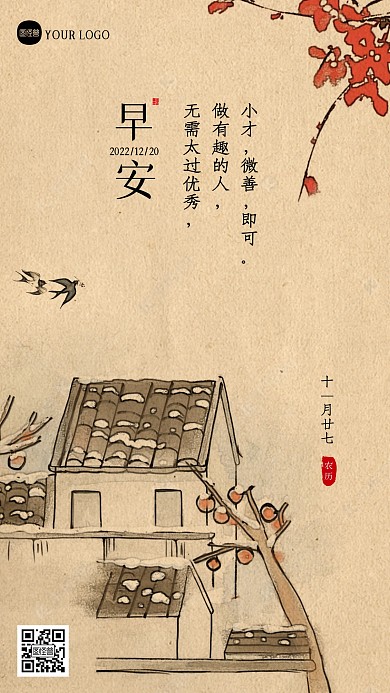 图怪兽 YOUR LOGO
早安
2022/12/20
无需太过优秀，
做有趣的人，
小才，微善，即可。
十一月廿七
农历
图怪兽